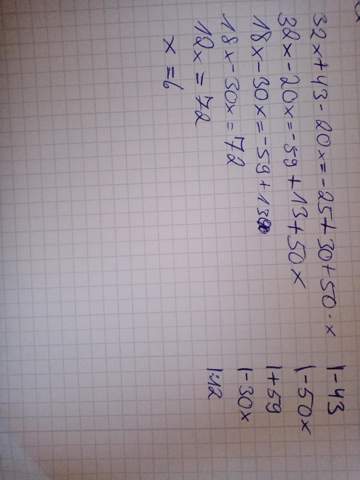 32x+43-20x=-25+30+50·x |-43
32x-20x=-59+13+50x |-50x
18x-30x=-59+13 |+59
18x-30x=72 |-30x
12x=72 |:12
x=6